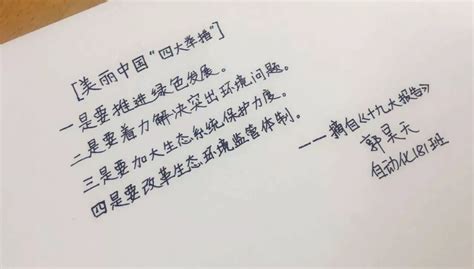 [美丽中国“四大举措”]
一是要推进绿色发展。
二是要着力解决突出环境问题。
三是要加大生态系统保护力度。
四是要改革生态环境监管体制。
——摘自《十九大报告》
郭昊天
自动化181班